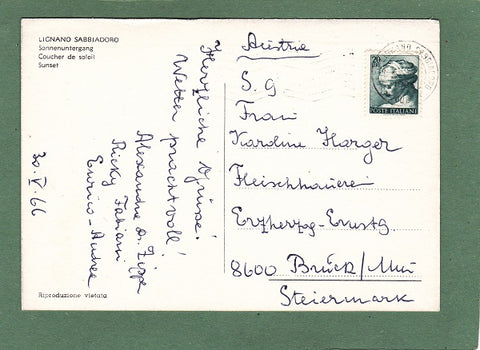 LIGNANO SABBIADORO
Sonnenuntergang
Coucher de soleil
Sunset
Herzliche Grüsse!
Wetter prachtvoll!
Alexandra
Ricky Fabiani
Enrico - Andrea
30. V. 66
Riproduzione vietata
Austria
S. g
Frau
Karoline Harger
Fleischhauerei
Erzherzog-Ernstg.
8600 Bruck/Mur
Steiermark
POSTE ITALIANE